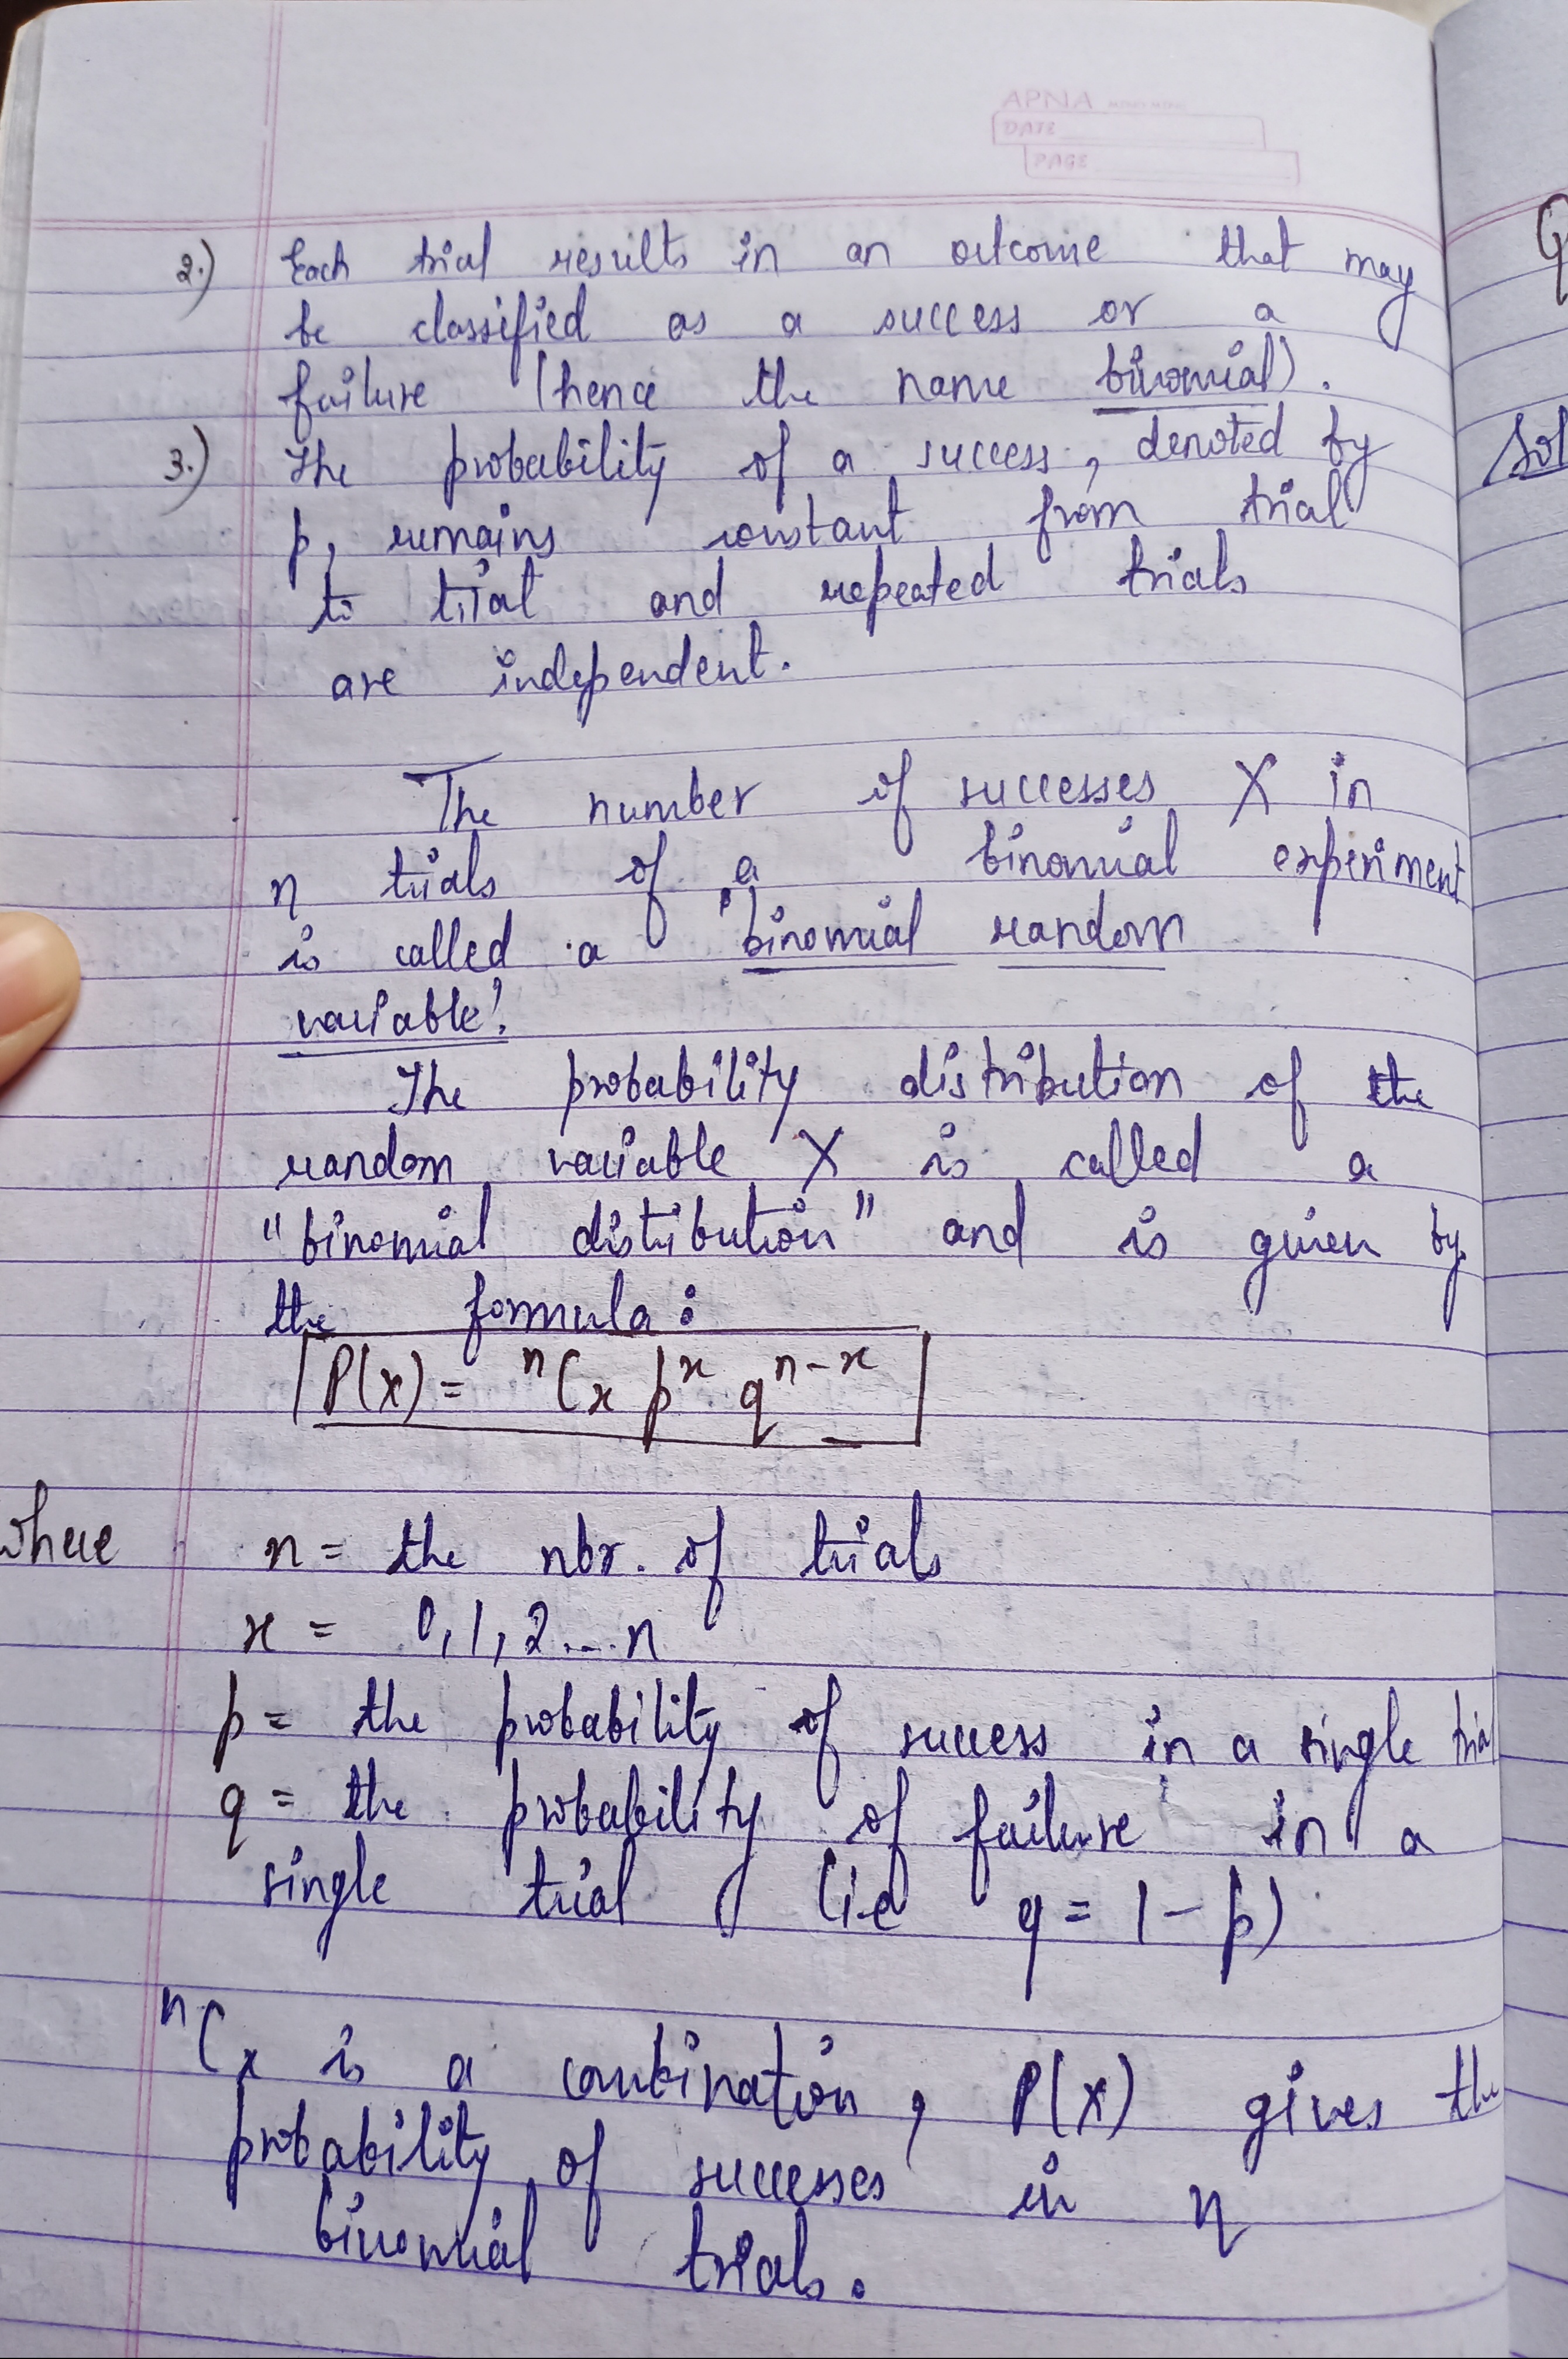 APNA
DATE
PAGE
2.) Each trial results in an outcome that may
be classified as a success or a
failure (hence the name binomial).
3.) The probability of a success, denoted by
p, remains constant from trial
to trial and repeated trials
are independent.
The number of successes X in
n trials of a binomial experiment
is called a "binomial random
variable".
The probability distribution of the
random variable X is called a
"binomial distribution" and is given by
the formula:
P(x) = ⁿCₓ pˣ qⁿ⁻ˣ
where n = the nbr. of trials
x = 0, 1, 2 ... n
p = the probability of success in a single trial
q = the probability of failure in a
single trial (i.e q = 1 - p)
ⁿCₓ is a combination, P(x) gives the
probability of successes in n
binomial trials.
Sol